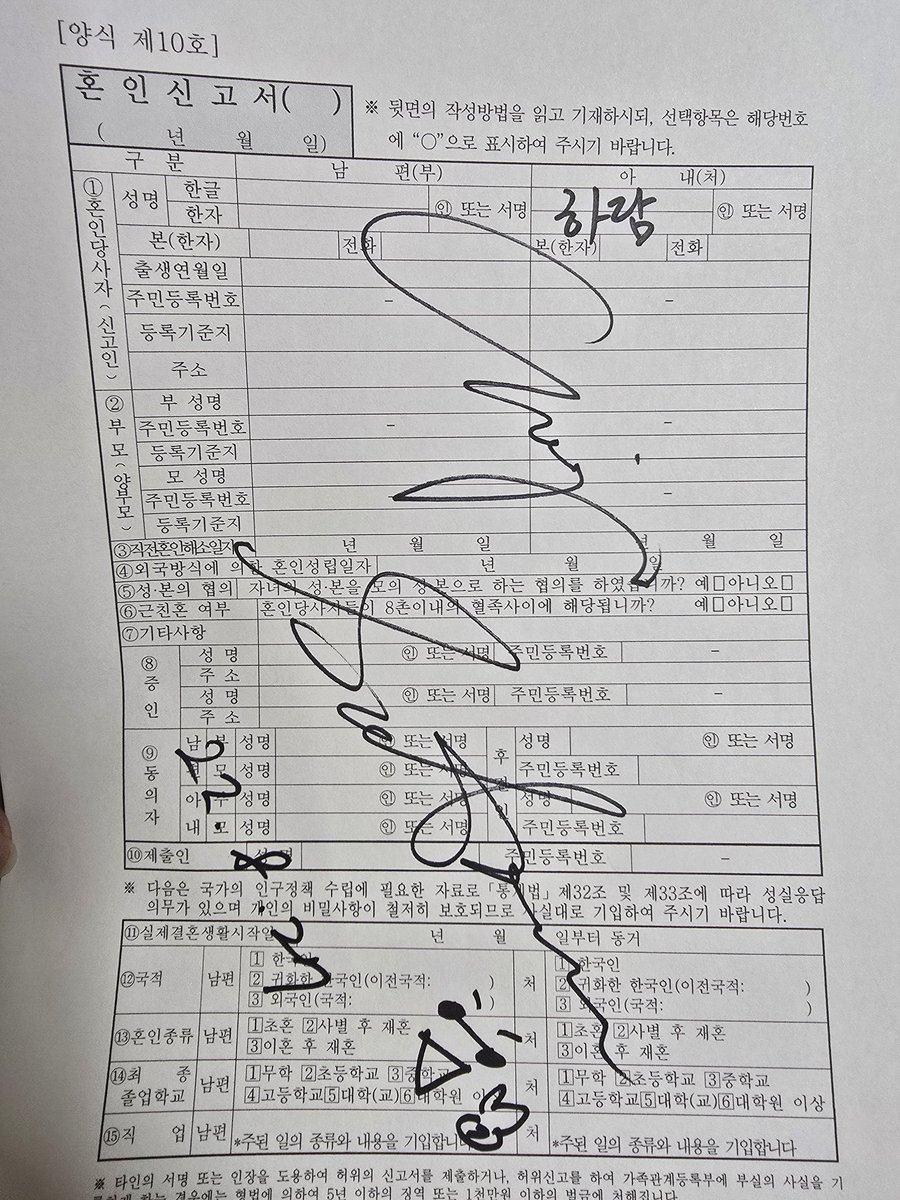 [양식 제10호]
혼 인 신 고 서( )
( 년 월 일)
※ 뒷면의 작성방법을 읽고 기재하시되, 선택항목은 해당번호
에 “○”으로 표시하여 주시기 바랍니다.
구 분 남 편(부) 아 내(처)
①혼인당사자(신고인)
성명 한글 ㊞ 또는 서명 하람 ㊞ 또는 서명
한자
본(한자) 전화 본(한자) 전화
출생연월일
주민등록번호 - -
등록기준지
주소
②부모(양부모)
부 성명
주민등록번호 -
등록기준지
모 성명
주민등록번호 -
등록기준지
③직전혼인해소일자 년 월 일 년 월 일
④외국방식에 의한 혼인성립일자 년 월 일
⑤성·본의 협의 자녀의 성·본을 모의 성·본으로 하는 협의를 하였습니까? 예□아니오□
⑥근친혼 여부 혼인당사자들이 8촌이내의 혈족사이에 해당됩니까? 예□아니오□
⑦기타사항
⑧증인
성 명 ㊞ 또는 서명 주민등록번호 -
주 소
성 명 ㊞ 또는 서명 주민등록번호 -
주 소
⑨동의자
남편 부 성명 ㊞ 또는 서명 후견인 성명 ㊞ 또는 서명
모 성명 ㊞ 또는 서명 주민등록번호
아내 부 성명 ㊞ 또는 서명 성명 ㊞ 또는 서명
모 성명 ㊞ 또는 서명 주민등록번호
⑩제출인 성 명 주민등록번호 -
※ 다음은 국가의 인구정책 수립에 필요한 자료로「통계법」제32조 및 제33조에 따라 성실응답
의무가 있으며 개인의 비밀사항이 철저히 보호되므로 사실대로 기입하여 주시기 바랍니다.
⑪실제결혼생활시작일 년 월 일부터 동거
⑫국적 남편 1 한국인 처 1 한국인
2 귀화한 한국인(이전국적: ) 2 귀화한 한국인(이전국적: )
3 외국인(국적: ) 3 외국인(국적: )
⑬혼인종류 남편 1초혼 2사별 후 재혼 처 1초혼 2사별 후 재혼
3이혼 후 재혼 3이혼 후 재혼
⑭최 종 졸업학교 남편 1무학 2초등학교 3중학교 처 1무학 2초등학교 3중학교
4고등학교5대학(교)6대학원 이상 4고등학교5대학(교)6대학원 이상
⑮직 업 남편 *주된 일의 종류와 내용을 기입합니다 처 *주된 일의 종류와 내용을 기입합니다
※ 타인의 서명 또는 인장을 도용하여 허위의 신고서를 제출하거나, 허위신고를 하여 가족관계등록부에 부실의 사실을 기
록하게 하는 경우에는 형법에 의하여 5년 이하의 징역 또는 1천만원 이하의 벌금에 처해집니다.